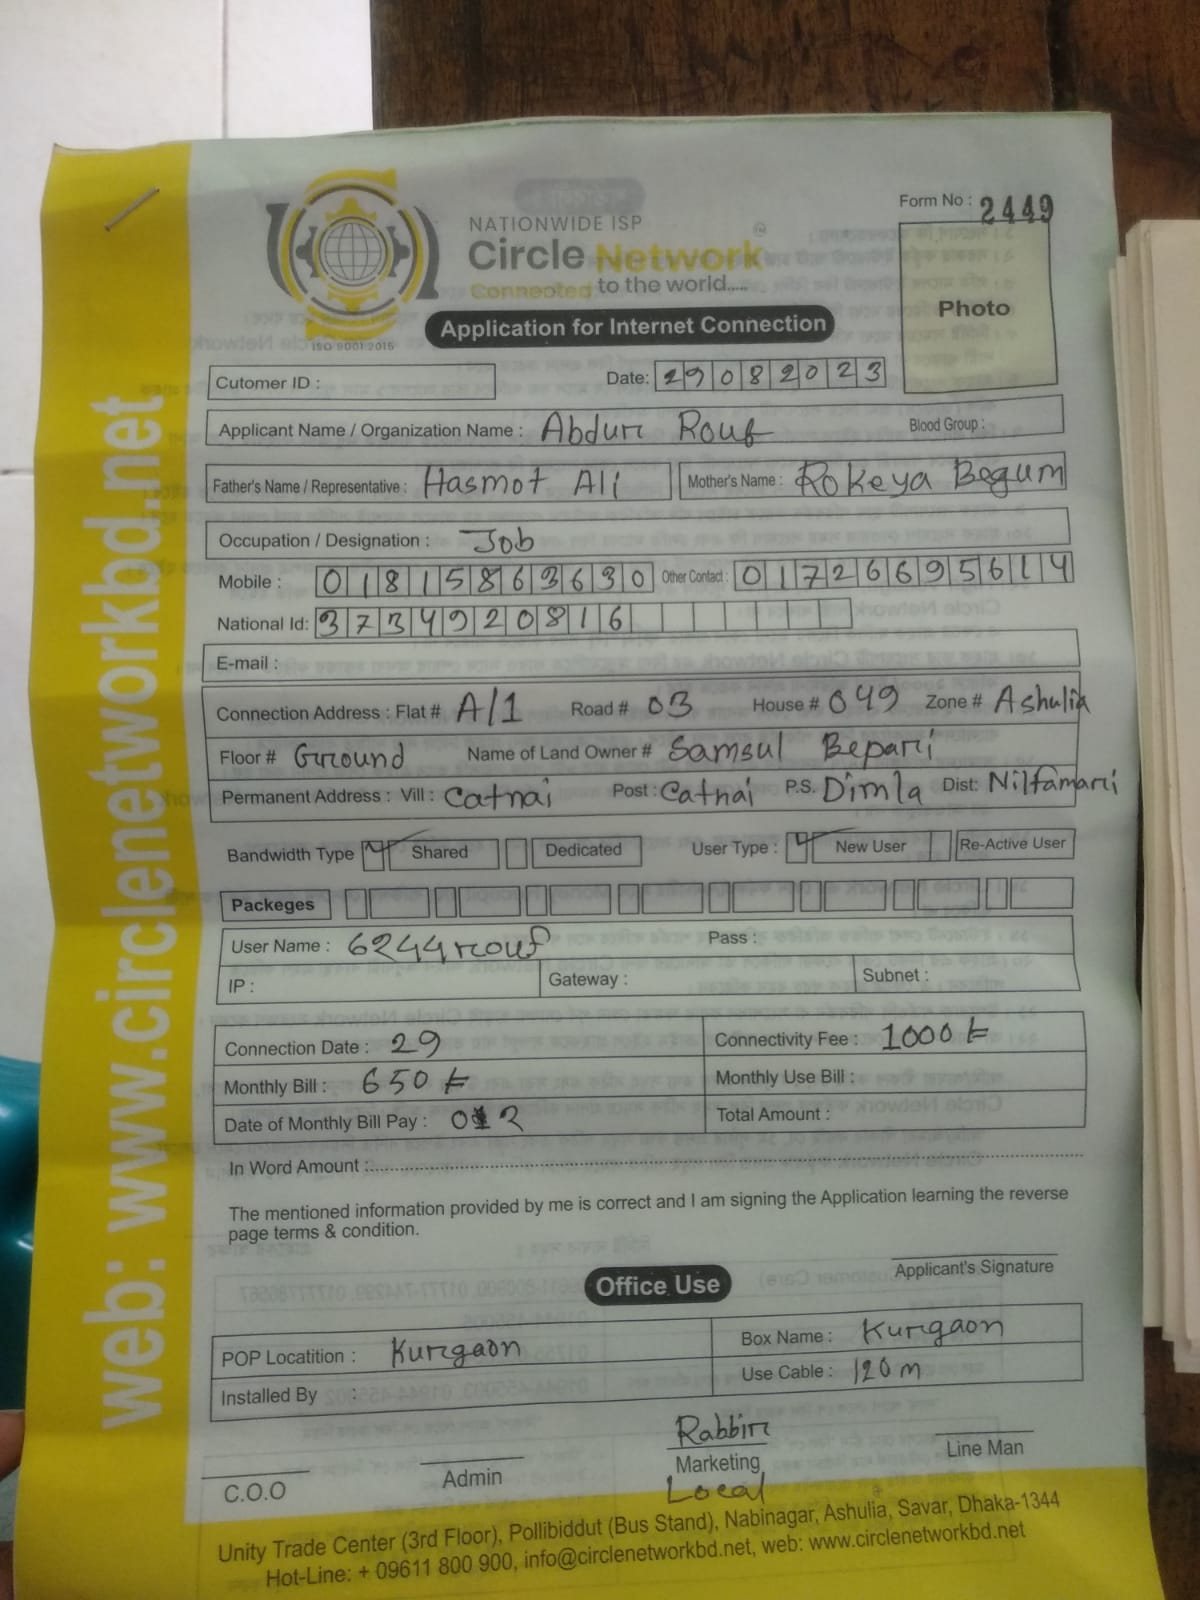 Form No : 2449
NATIONWIDE ISP
Circle Network ®
Connected to the world.....
ISO 9001:2015
Application for Internet Connection
Photo
Cutomer ID :
Date: 29082023
Applicant Name / Organization Name : Abdur Rouf
Blood Group :
Father's Name / Representative : Hasmot Ali
Mother's Name : Rokeya Begum
Occupation / Designation : Job
Mobile : 01815863630 Other Contact : 01726695614
National Id: 3734920816
E-mail :
Connection Address : Flat # A/1 Road # 03 House # 049 Zone # Ashulia
Floor # Ground Name of Land Owner # Samsul Bepari
Permanent Address : Vill : Catnai Post : Catnai P.S. Dimla Dist: Nilfamari
Bandwidth Type Shared Dedicated User Type : New User Re-Active User
Packeges
User Name : 6244rouf Pass :
IP : Gateway : Subnet :
Connection Date : 29 Connectivity Fee : 1000 ৳
Monthly Bill : 650 ৳ Monthly Use Bill :
Date of Monthly Bill Pay : 02 Total Amount :
In Word Amount :
The mentioned information provided by me is correct and I am signing the Application learning the reverse
page terms & condition.
Applicant's Signature
Office Use
POP Locatition : Kurgaon Box Name : Kurgaon
Installed By : Use Cable : 120 m
Rabbir
C.O.O Admin Marketing Line Man
Local
Unity Trade Center (3rd Floor), Pollibiddut (Bus Stand), Nabinagar, Ashulia, Savar, Dhaka-1344
Hot-Line: + 09611 800 900, info@circlenetworkbd.net, web: www.circlenetworkbd.net
web: www.circlenetworkbd.net